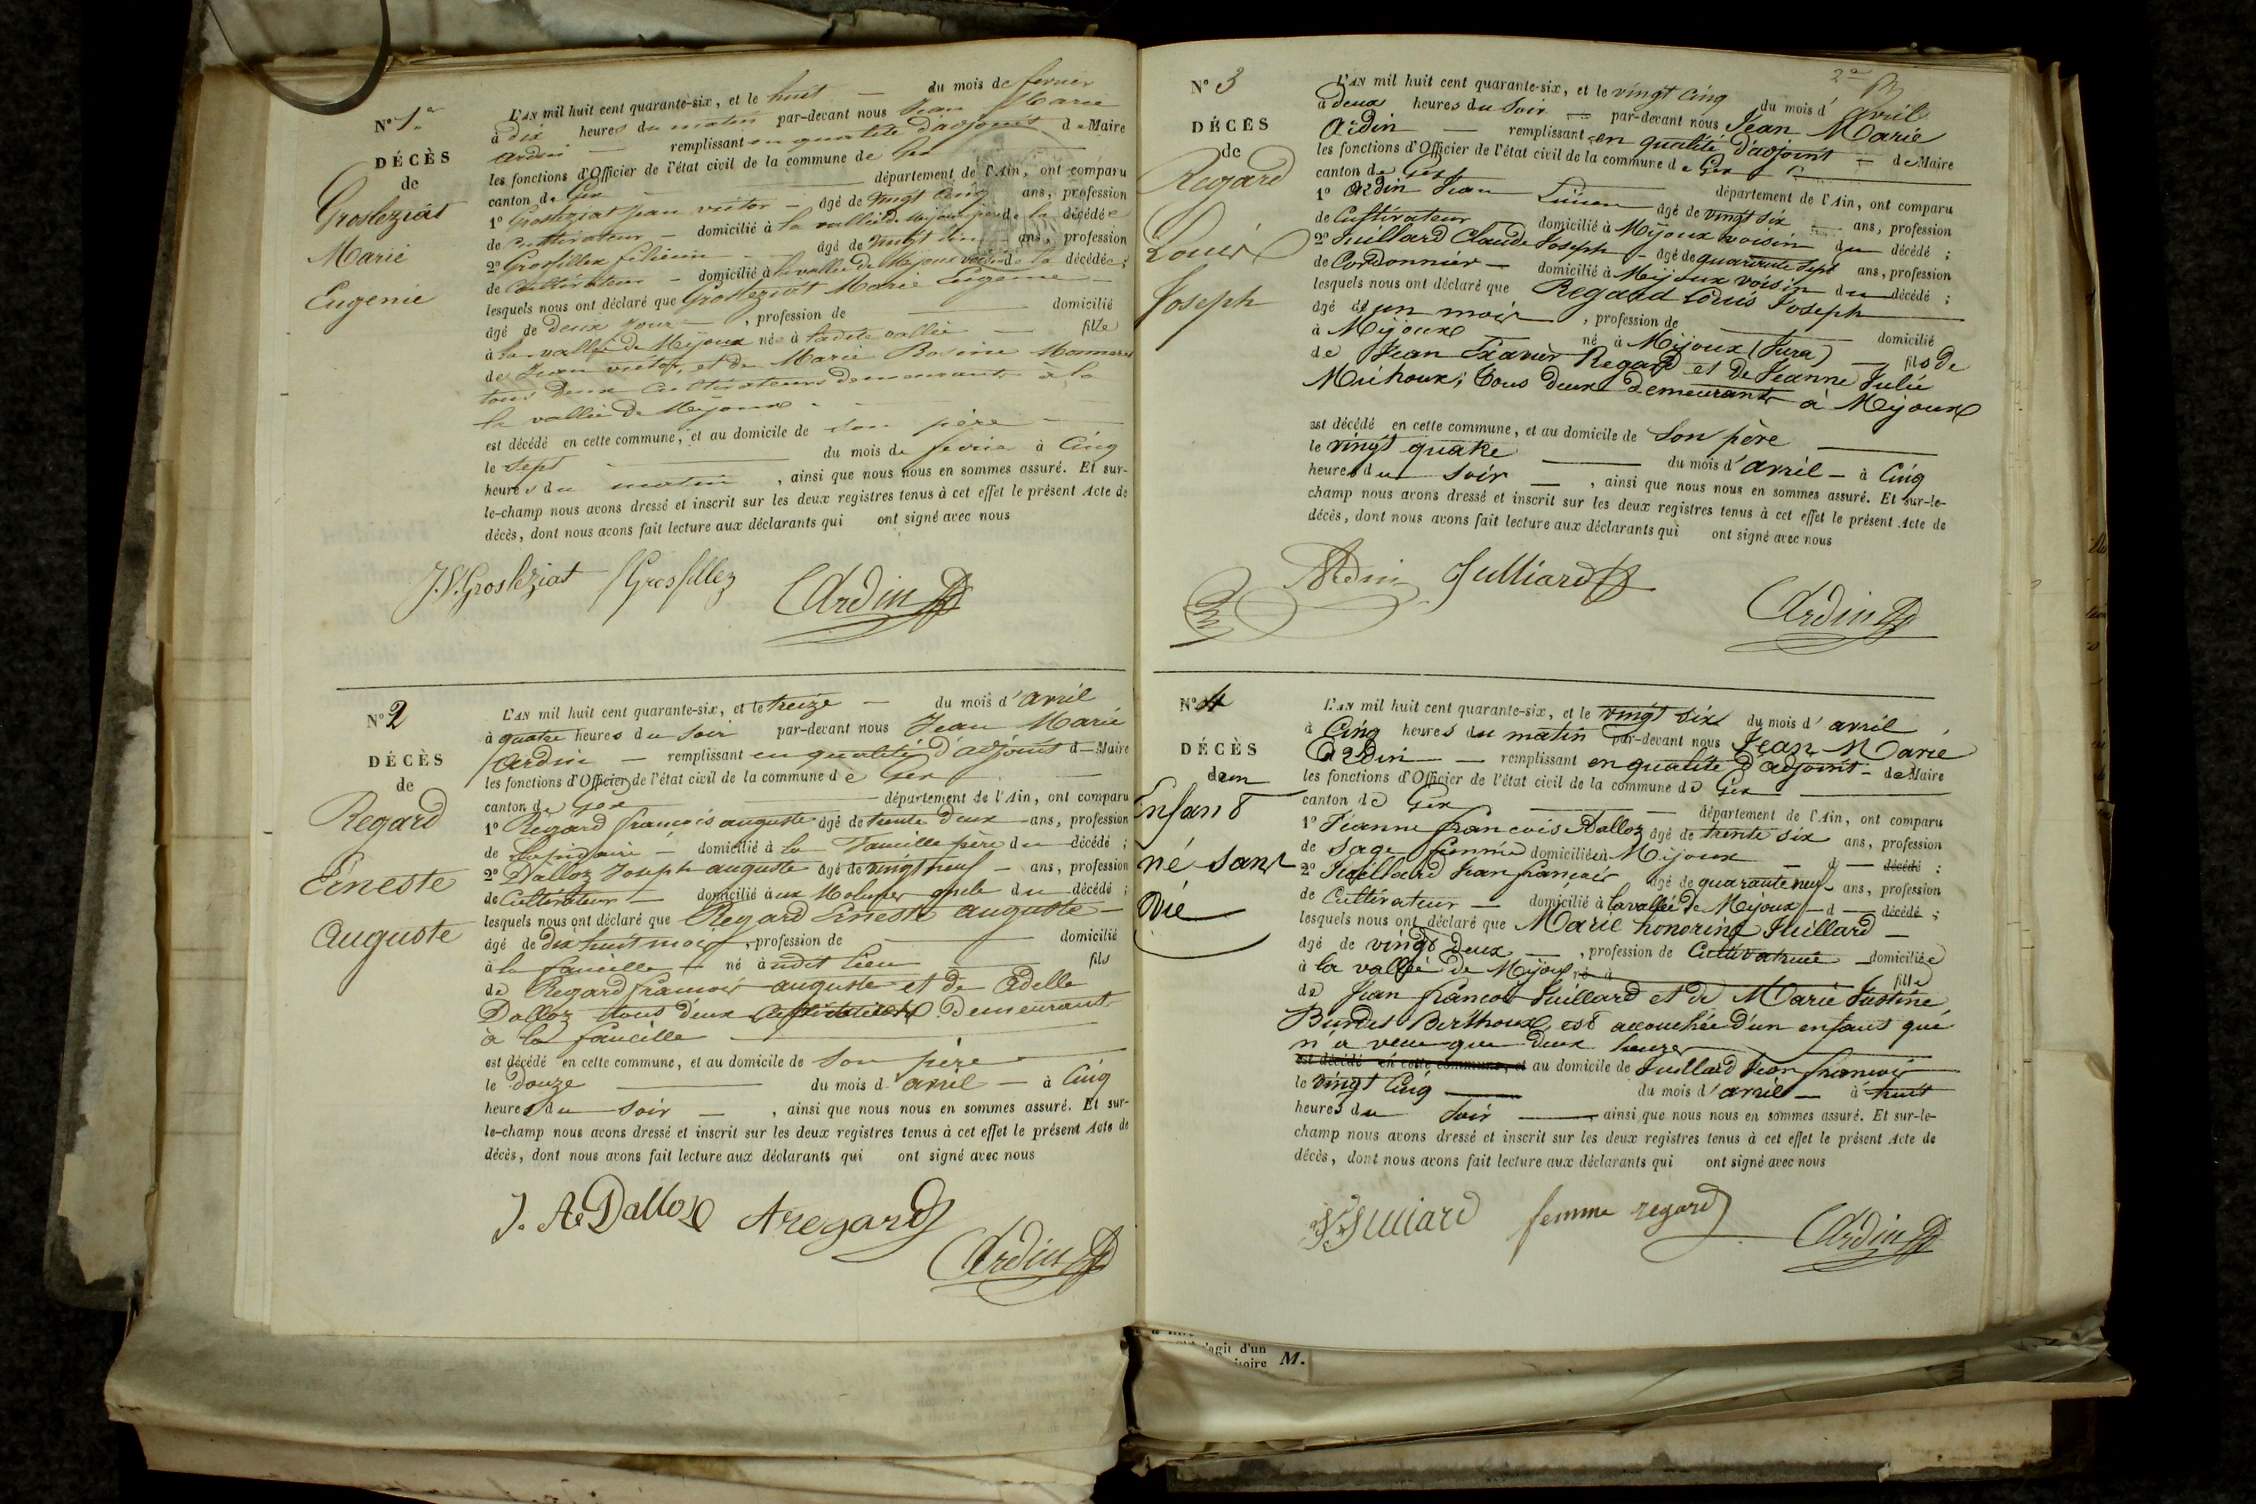 N° 1er
DÉCÈS
de
Grosleziat
Marie
Eugenie
L'AN mil huit cent quarante-six, et le huit — du mois de fevrier
à dix heures du matin par-devant nous Jean Marie
Ardin — remplissant en qualité d'adjoint de Maire
les fonctions d'Officier de l'état civil de la commune de Gex
canton de Gex — département de l'Ain, ont comparu
1° Grosleziat Jean victor — âgé de vingt cinq ans, profession
de Cultivateur — domicilié à la vallée de Mijoux père de la décédée
2° Grosfillex — âgé de vingt ans, profession
de Cultivateur — domicilié à la vallée de Mijoux voisin de la décédée;
lesquels nous ont déclaré que Grosleziat Marie Eugenie —
âgé de deux jours — , profession de — domicilié
à la vallée de Mijoux née à ladite vallée — fille
de Jean victor, et de Marie Rosine
tous deux Cultivateurs demeurants à la
la vallée de Mijoux
est décédé en cette commune, et au domicile de son père —
le sept — du mois de fevrier à Cinq
heures du matin , ainsi que nous nous en sommes assuré. Et sur-
le-champ nous avons dressé et inscrit sur les deux registres tenus à cet effet le présent Acte de
décès, dont nous avons fait lecture aux déclarants qui ont signé avec nous
J.V. Grosleziat Grosfillex Ardin
N° 2
DÉCÈS
de
Regard
Erneste
Auguste
L'AN mil huit cent quarante-six, et le treize — du mois d'avril
à quatre heures du soir par-devant nous Jean Marie
Ardin — remplissant en qualité d'adjoint d— Maire
les fonctions d'Officier de l'état civil de la commune de Gex —
canton de Gex — département de l'Ain, ont comparu
1° Regard françois auguste âgé de trente deux — ans, profession
de Lapidaire — domicilié à la Faucille père du décédé ;
2° Dalloz Joseph auguste âgé de vingt neuf — ans, profession
de Cultivateur — domicilié aux oncle du décédé ;
lesquels nous ont déclaré que Regard Erneste auguste —
âgé de dix huit mois , profession de — domicilié
à la faucille — né audit lieu — fils
de Regard françois auguste et de Adelle
Dalloz tous deux Demeurants
à la faucille —
est décédé en cette commune, et au domicile de son père —
le douze — du mois d'avril — à Cinq
heures du soir — , ainsi que nous nous en sommes assuré. Et sur-
le-champ nous avons dressé et inscrit sur les deux registres tenus à cet effet le présent Acte de
décès, dont nous avons fait lecture aux déclarants qui ont signé avec nous
J. A. Dalloz A regard
Ardin
2e
N° 3
DÉCÈS
de
Regard
Louis
Joseph
L'AN mil huit cent quarante-six, et le vingt Cinq du mois d'avril
à deux heures du soir — par-devant nous Jean Marie
Ardin — remplissant en qualité d'adjoint — de Maire
les fonctions d'Officier de l'état civil de la commune de Gex —
canton de Gex — département de l'Ain, ont comparu
1° Ardin Jean — âgé de vingt six — ans, profession
de Cultivateur domicilié à Mijoux voisin du décédé ;
2° Juillard Claude Joseph — âgé de quarante sept ans, profession
de Cordonnier — domicilié à Mijoux voisin du décédé ;
lesquels nous ont déclaré que Regard Louis Joseph —
âgé de un mois , profession de — domicilié
à Mijoux né à Mijoux (Jura) — fils de
de Jean Exavier Regard et de Jeanne Julie
Michoux; tous deux demeurants à Mijoux
est décédé en cette commune, et au domicile de son père —
le vingt quatre — du mois d'avril — à Cinq
heures du soir — , ainsi que nous nous en sommes assuré. Et sur-le-
champ nous avons dressé et inscrit sur les deux registres tenus à cet effet le présent Acte de
décès, dont nous avons fait lecture aux déclarants qui ont signé avec nous
Ardin Julliard
Ardin
N° 4
DÉCÈS
d'un
Enfant
né sans
Vie
L'AN mil huit cent quarante-six, et le vingt six du mois d'avril
à Cinq heures du matin par-devant nous Jean Marie
Ardin — remplissant en qualité d'adjoint — de Maire
les fonctions d'Officier de l'état civil de la commune de Gex —
canton de Gex — département de l'Ain, ont comparu
1° Jeanne françoise Dalloz âgé de trente six ans, profession
de sage femme domiciliée à Mijoux — d — décédé ;
2° Juillard Jean françois âgé de quarante neuf ans, profession
de Cultivateur — domicilié à la vallée de Mijoux — d — décédé ;
lesquels nous ont déclaré que Marie honorine Juillard —
âgé de vingt deux — , profession de Cultivatrice — domiciliée
à la vallée de Mijoux, né à — fille
de Jean françois Juillard et de Marie Justine
Berthoux, est accouchée d'un enfant qui
n'a vécu que deux heures —
est décédé en cette commune, et au domicile de Juillard Jean françois
le vingt Cinq — du mois d'avril — à huit
heures du soir — , ainsi que nous nous en sommes assuré. Et sur-le-
champ nous avons dressé et inscrit sur les deux registres tenus à cet effet le présent Acte de
décès, dont nous avons fait lecture aux déclarants qui ont signé avec nous
Julliard femme regard Ardin
s'agit d'un
M.